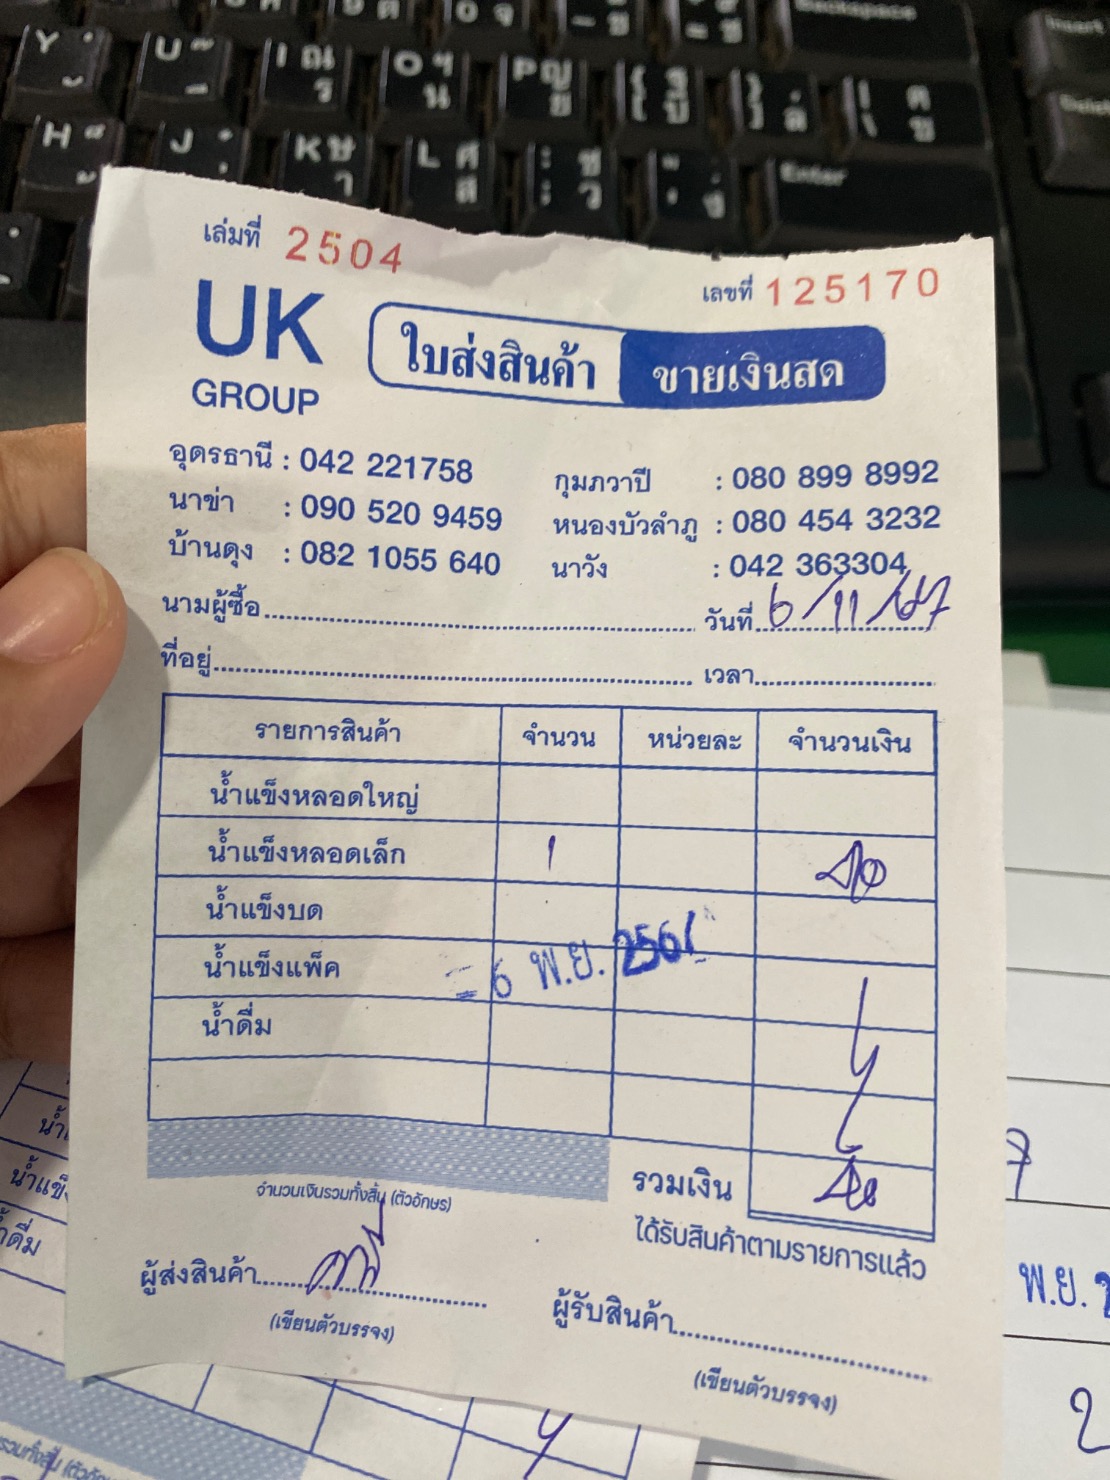 เล่มที่ 2504
เลขที่ 125170
UK
GROUP
ใบส่งสินค้า ขายเงินสด
อุดรธานี : 042 221758 กุมภวาปี : 080 899 8992
นาข่า : 090 520 9459 หนองบัวลำภู : 080 454 3232
บ้านดุง : 082 1055 640 นาวัง : 042 363304
นามผู้ซื้อ วันที่ 6/11/67
ที่อยู่ เวลา
รายการสินค้า จำนวน หน่วยละ จำนวนเงิน
น้ำแข็งหลอดใหญ่
น้ำแข็งหลอดเล็ก 1
น้ำแข็งบด
น้ำแข็งแพ็ค
6 พ.ย. 256
น้ำดื่ม
จำนวนเงินรวมทั้งสิ้น (ตัวอักษร)
รวมเงิน
ได้รับสินค้าตามรายการแล้ว
ผู้ส่งสินค้า
(เขียนตัวบรรจง)
ผู้รับสินค้า
(เขียนตัวบรรจง)
พ.ย.
Y
U
I ณ ร
O ฯ น
P ญ ย
Backspace
Insert
H
J
K ษ า
L ศ ส
Enter